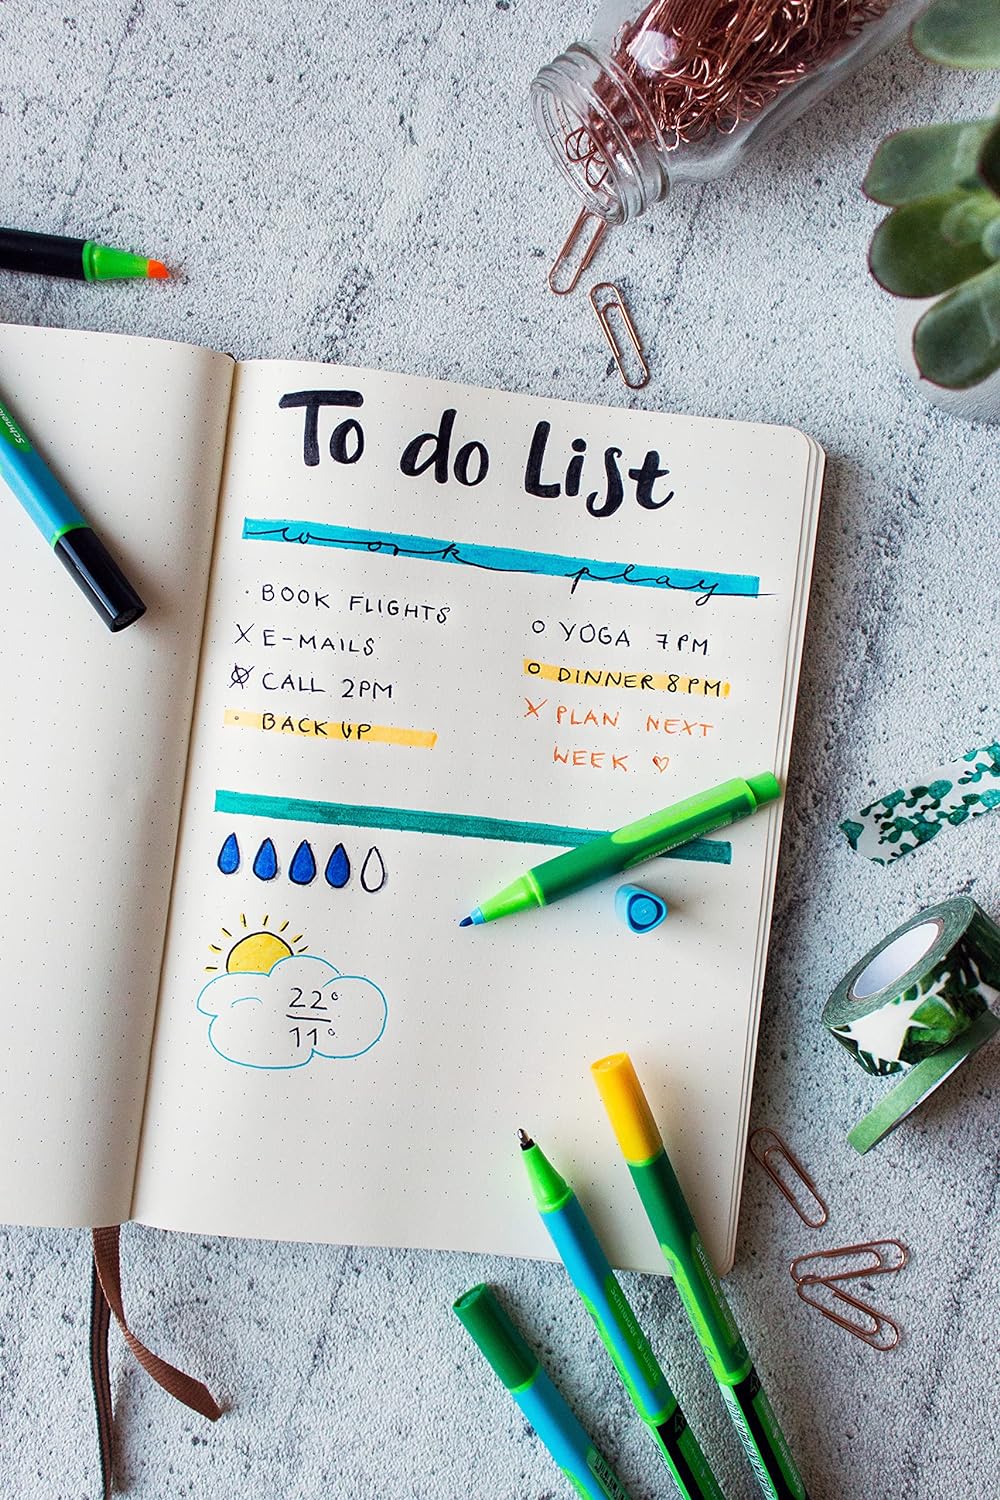 To do List
work play
· BOOK FLIGHTS
X E-MAILS
CALL 2PM
· BACK UP
O YOGA 7PM
O DINNER 8PM
X PLAN NEXT
WEEK ♡
22°
11°
Schneider
Schneider